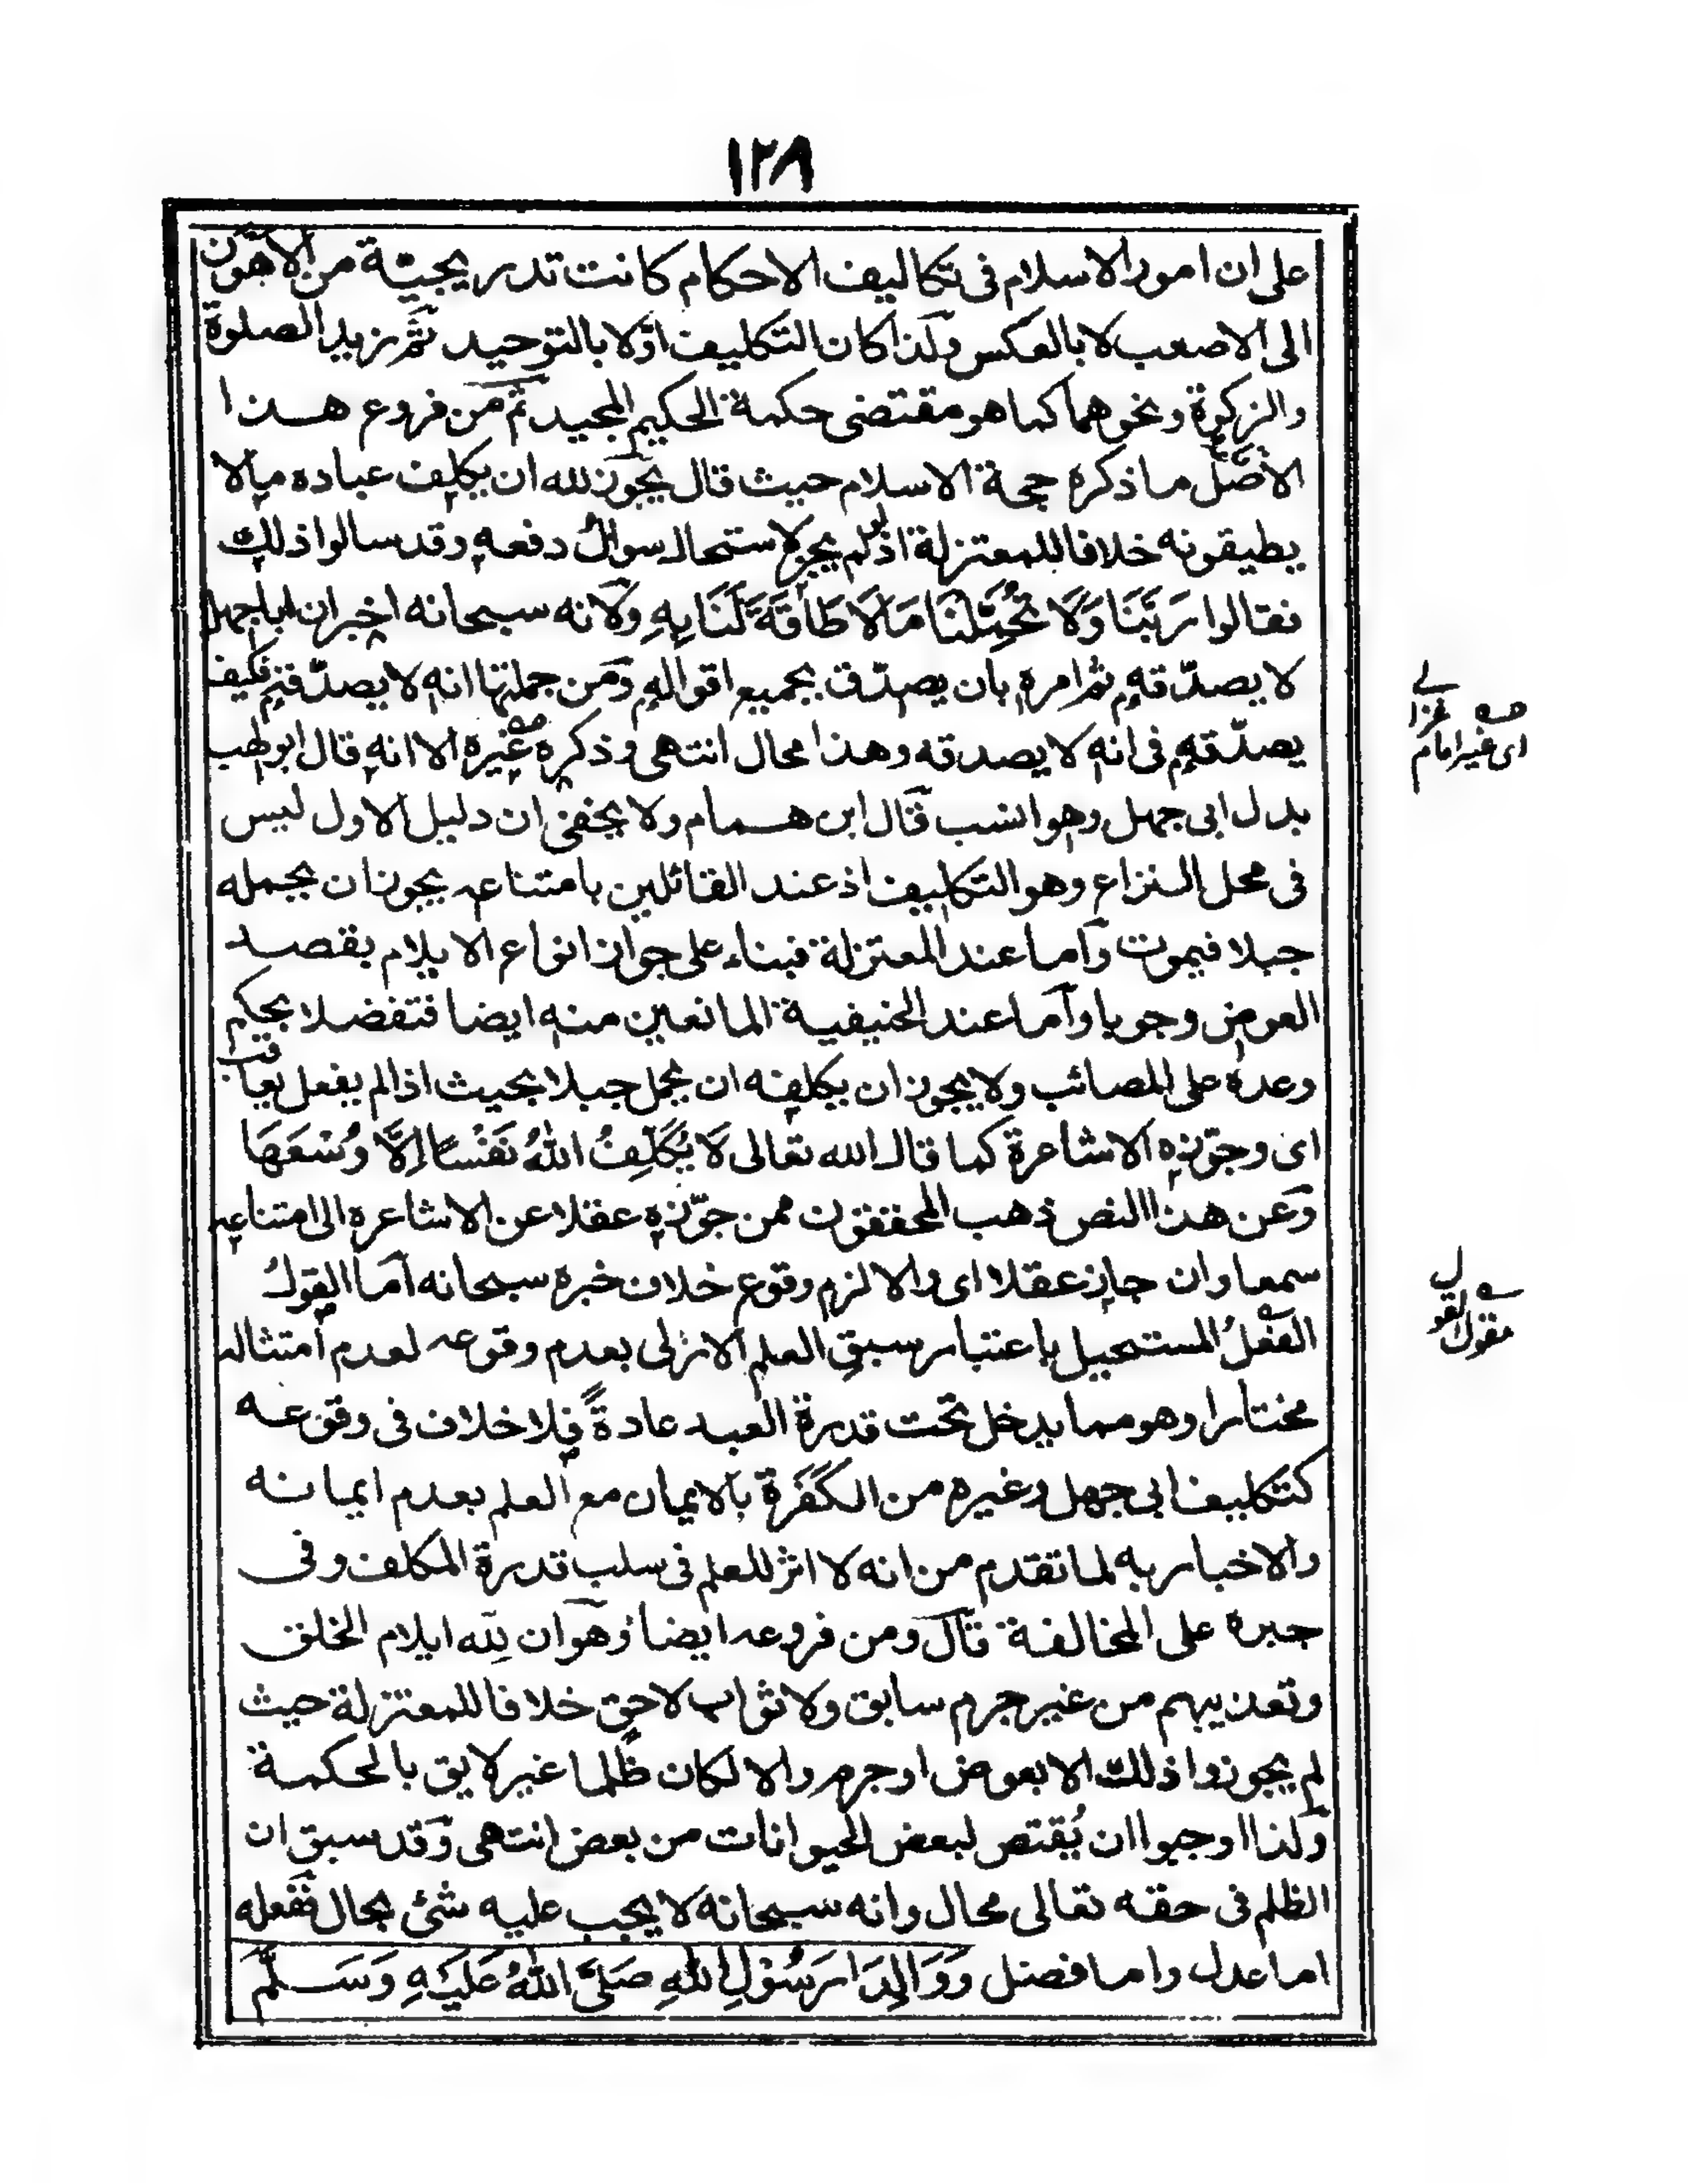 ١٢٨
على ان امور الاسلام فى تكاليف الاحكام كانت تدريجيّة من الاهون
الى الاصعب لا بالعكس ولذا كان التكليف اوّلا بالتوحيد ثم زيد الصلوة
والزكوة ونحوهما كما هو مقتضى حكمة الحكيم المجيد ثم من فروع هذا
الاصل ما ذكره حجة الاسلام حيث قال يجوز لله ان يكلف عباده مالا
يطيقونه خلافا للمعتزلة اذ لو لم يجز لاستحال سوال دفعه وقد سالوا ذلك
فقالوا رَبَّنَا وَلَا تُحَمِّلْنَا مَالَا طَاقَةَ لَنَا بِهِ ولانه سبحانه اخبر ان ابا جهل
لا يصدّقه ثم امره بان يصدّق بجميع اقواله ومن جملتها انه لا يصدّقه فكيف
يصدّقه فى انه لا يصدقه وهذا محال انتهى وذكره غيره الا انه قال ابو لهب
بدل ابى جهل وهو انسب قال ابن همام ولا يخفى ان دليل الاول ليس
فى محل النزاع وهو التكليف اذ عند القائلين بامتناعه يجوز ان يحمله
جبلا فيموت واما عند المعتزلة فبناء على جواز انواع الايلام بقصد
العوض وجوبا واما عند الحنيفية المانعين منه ايضا فتفضلا بحكم
وعده على المصائب ولا يجوز ان يكلفه ان يحمل جبلا بحيث اذا لم يفعل يعاقب
اى وجوّزه الاشاعرة كما قال الله تعالى لَا يُكَلِّفُ اللهُ نَفْسًا اِلَّا وُسْعَهَا
وعن هذا النص ذهب المحققون ممن جوّزه عقلا عن الاشاعره الى امتناعه
سمعا وان جاز عقلا اى والا لزم وقوع خلاف خبره سبحانه اما القول
الفعل المستحيل باعتبار سبق العلم الازلى بعدم وقوعه لعدم امتثاله
مختارا وهو مما يدخل تحت قدرة العبد عادةً فلا خلاف فى وقوعه
كتكليف ابى جهل وغيره من الكَفَرَة بالايمان مع العلم بعدم ايمانه
والاخبار به لما تقدم من انه لا اثر للعلم فى سلب قدرة المكلف وفى
جبره على المخالفة قال ومن فروعه ايضا وهو ان لله ايلام الخلق
وتعذيبهم من غير جرم سابق ولا ثواب لاحق خلافا للمعتزلة حيث
لم يجوزوا ذلك الا بعوض او جرم والا لكان ظلما غير لايق بالحكمة
ولذا اوجبوا ان يُقتص لبعض الحيوانات من بعض انتهى وقد سبق ان
الظلم فى حقه تعالى محال وانه سبحانه لا يجب عليه شئ بحال ففعله
اما عدل واما فضل وَوَالِدَا رَسُوْلِ اللهِ صَلَّى اللهُ عَلَيْهِ وَسَلَّمَ
اى غير امام
غزالے
مقول لقول